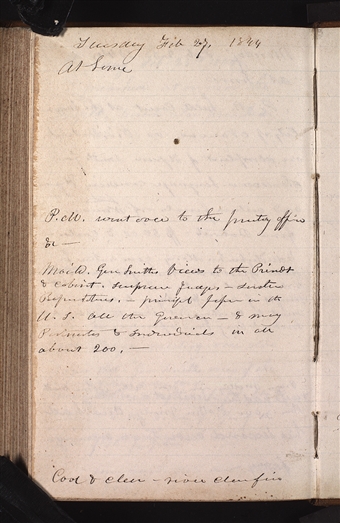 Tuesday Feb 27, 1844
At home
P.M. went over to the printing office
&c —
Mail'd. Gen Smiths Views to the Presidt
& Cabint. supreme Judges — Senators
Reprentives. — principl papers in the
U.S. all the Governors — & many
Postmasters & Individuals in all
about 200. —
Cool & clear — river clear